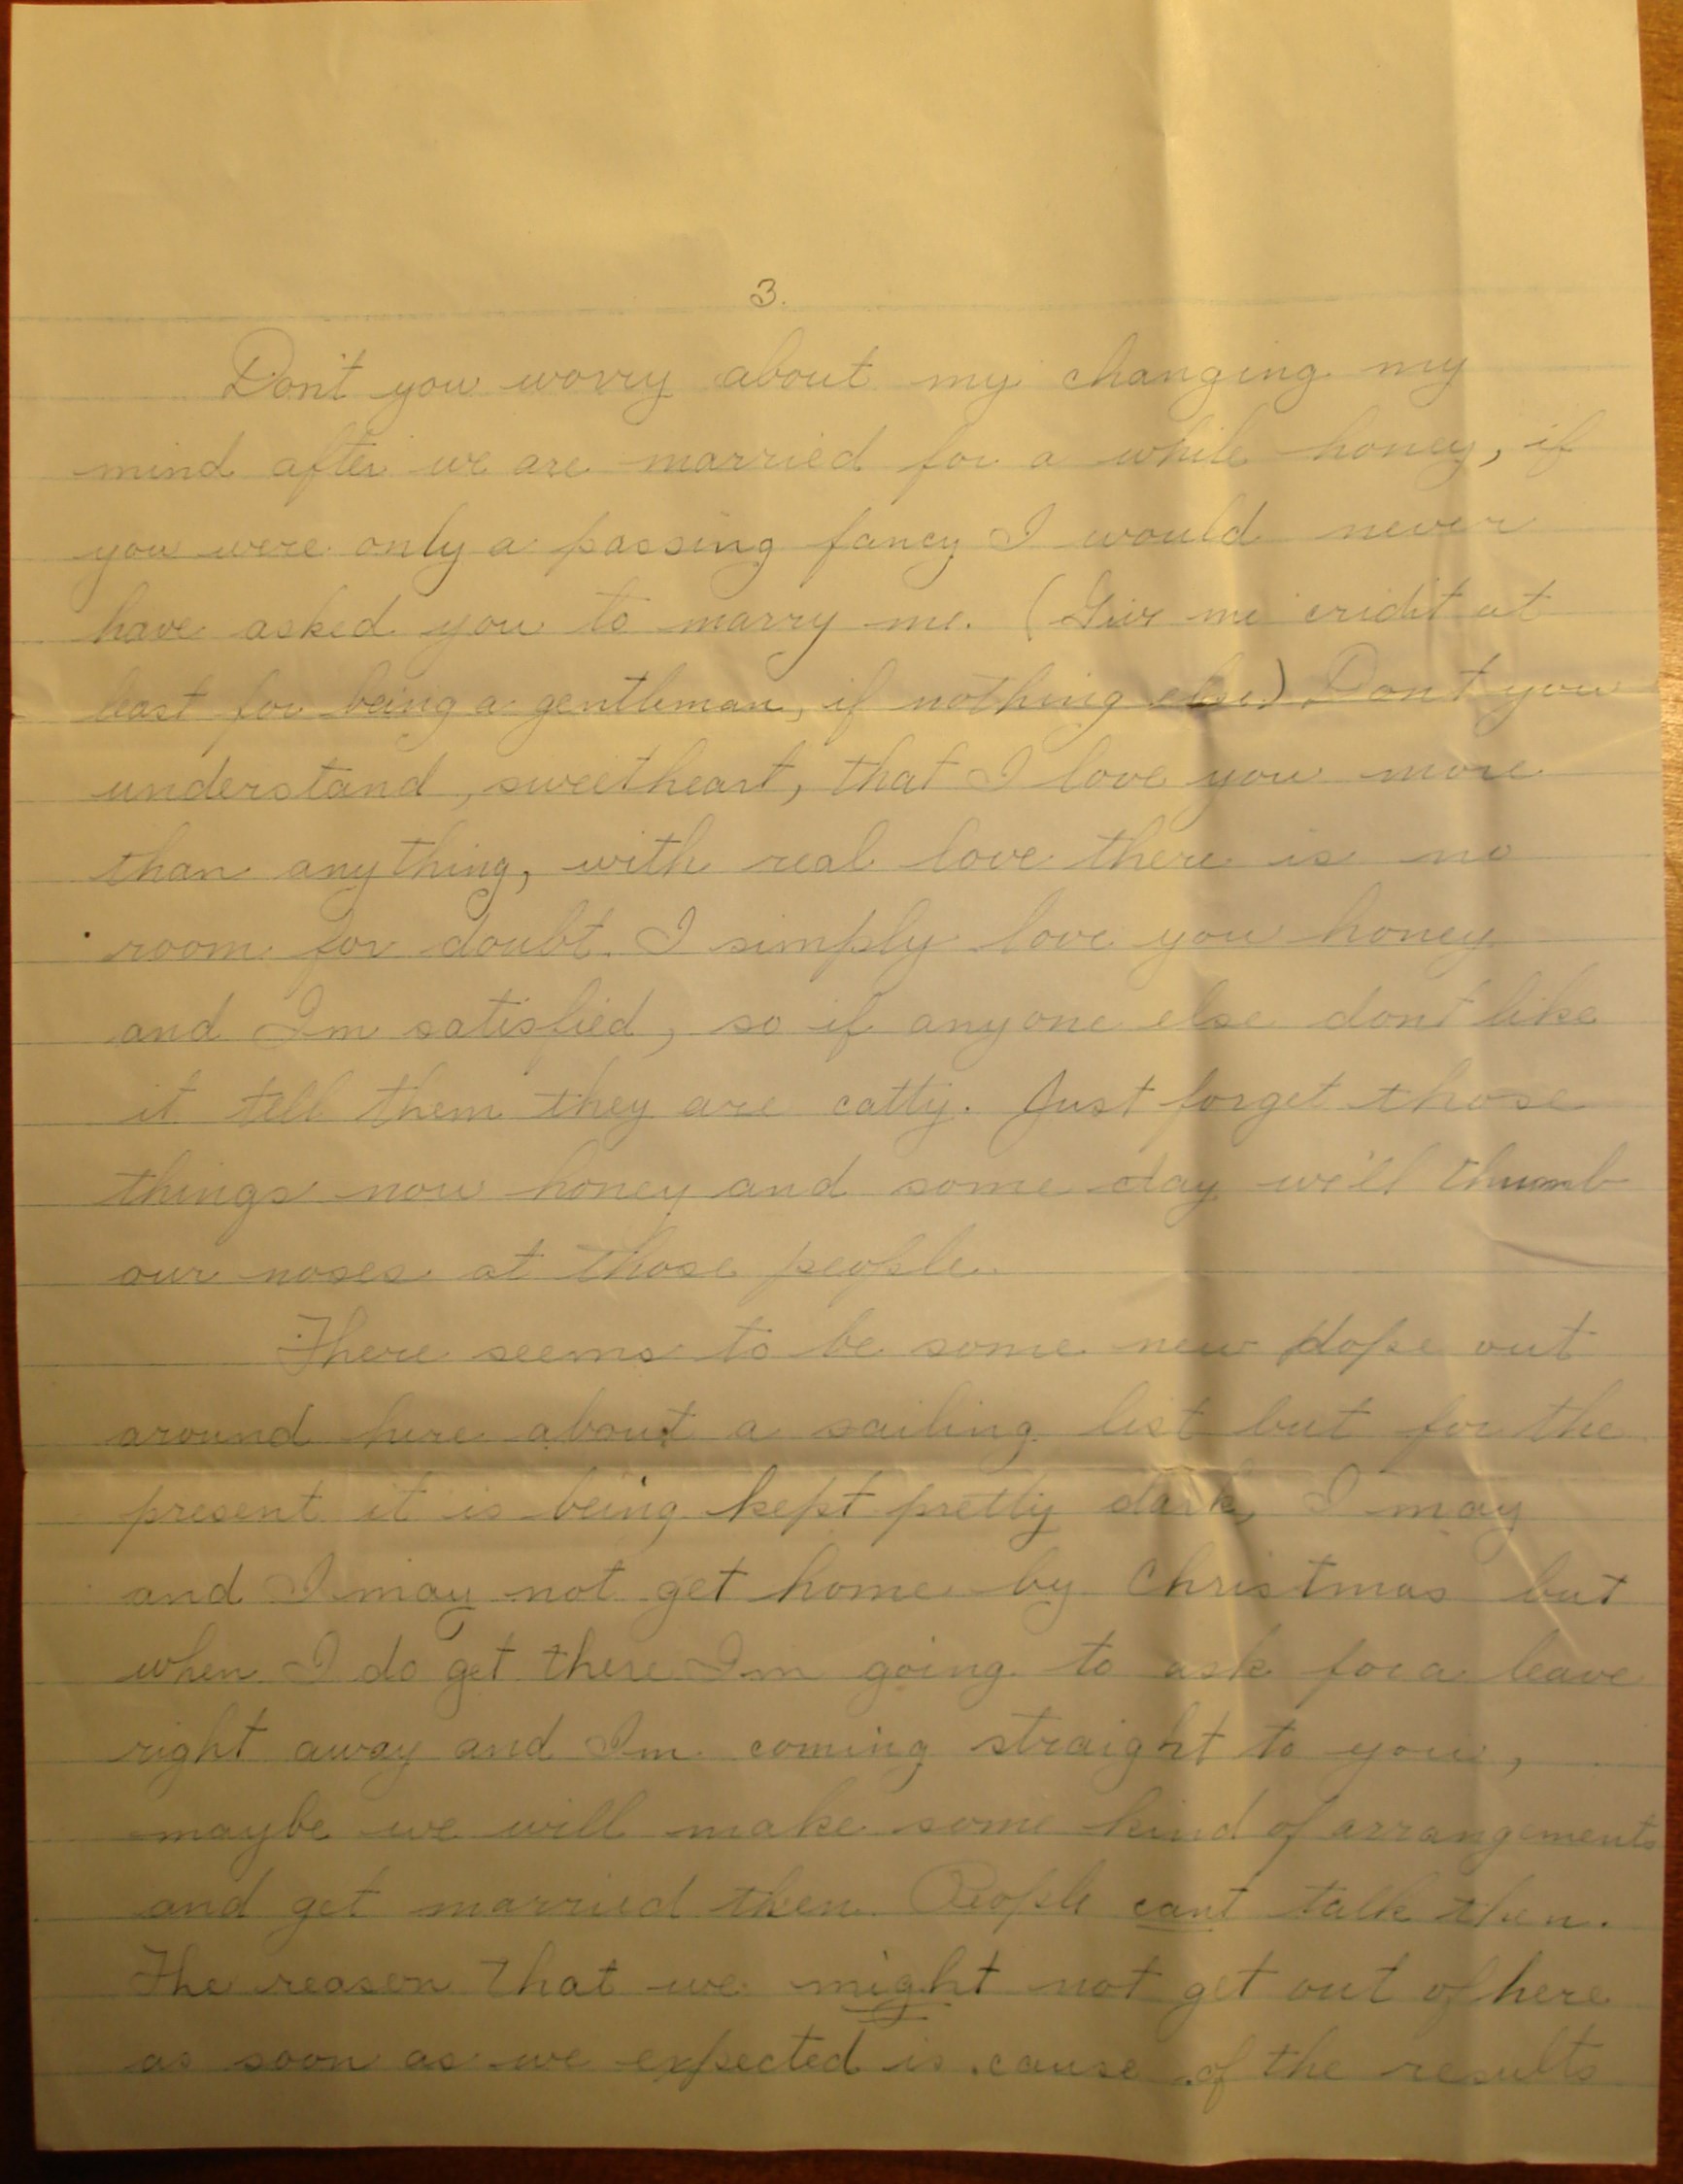 3.
Don't you worry about my changing my
mind after we are married for a while honey, if
you were only a passing fancy I would never
have asked you to marry me. (Give me cridit at
least for being a gentleman, if nothing else) Don't you
understand, sweetheart, that I love you more
than anything, with real love there is no
room for doubt. I simply love you honey
and I'm satisfied, so if anyone else dont like
it tell them they are catty. Just forget those
things now honey and some day we'll thumb
our noses at those people.
There seems to be some new dope out
around here about a sailing list but for the
present it is being kept pretty dark, I may
and I may not get home by Christmas but
when I do get there I'm going to ask for a leave
right away and I'm coming straight to you,
maybe we will make some kind of arrangements
and get married then. People cant talk then.
The reason that we might not get out of here
as soon as we expected is cause of the results